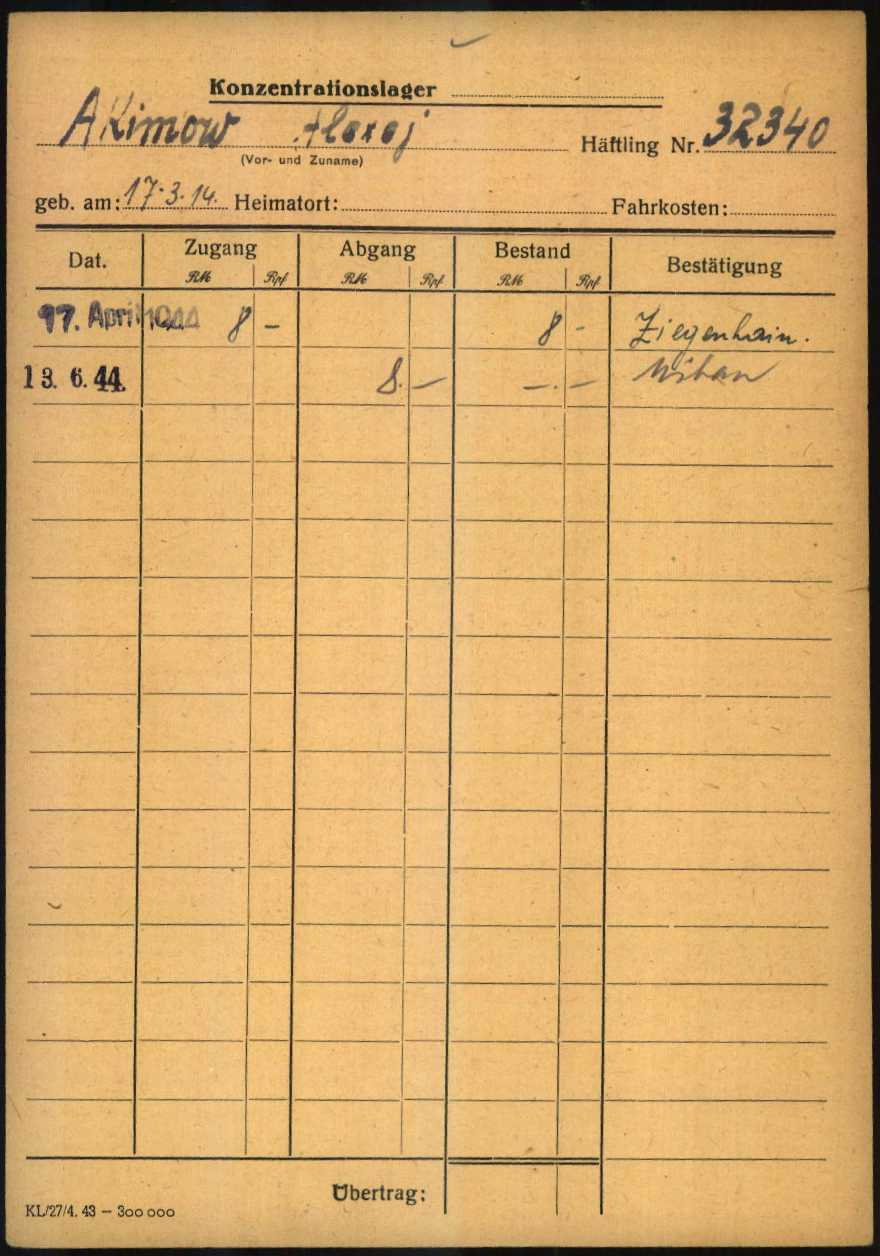 Konzentrationslager
Akimow Alexej Häftling Nr. 32340
(Vor- und Zuname)
geb. am: 17.3.14. Heimatort: Fahrkosten:
Dat. Zugang Abgang Bestand Bestätigung
RM Rpf RM Rpf RM Rpf
April 1944 8 – 8 - Ziegenhain.
13. 6. 44. 8. – –.–
Übertrag:
KL/27/4. 43 – 300 000